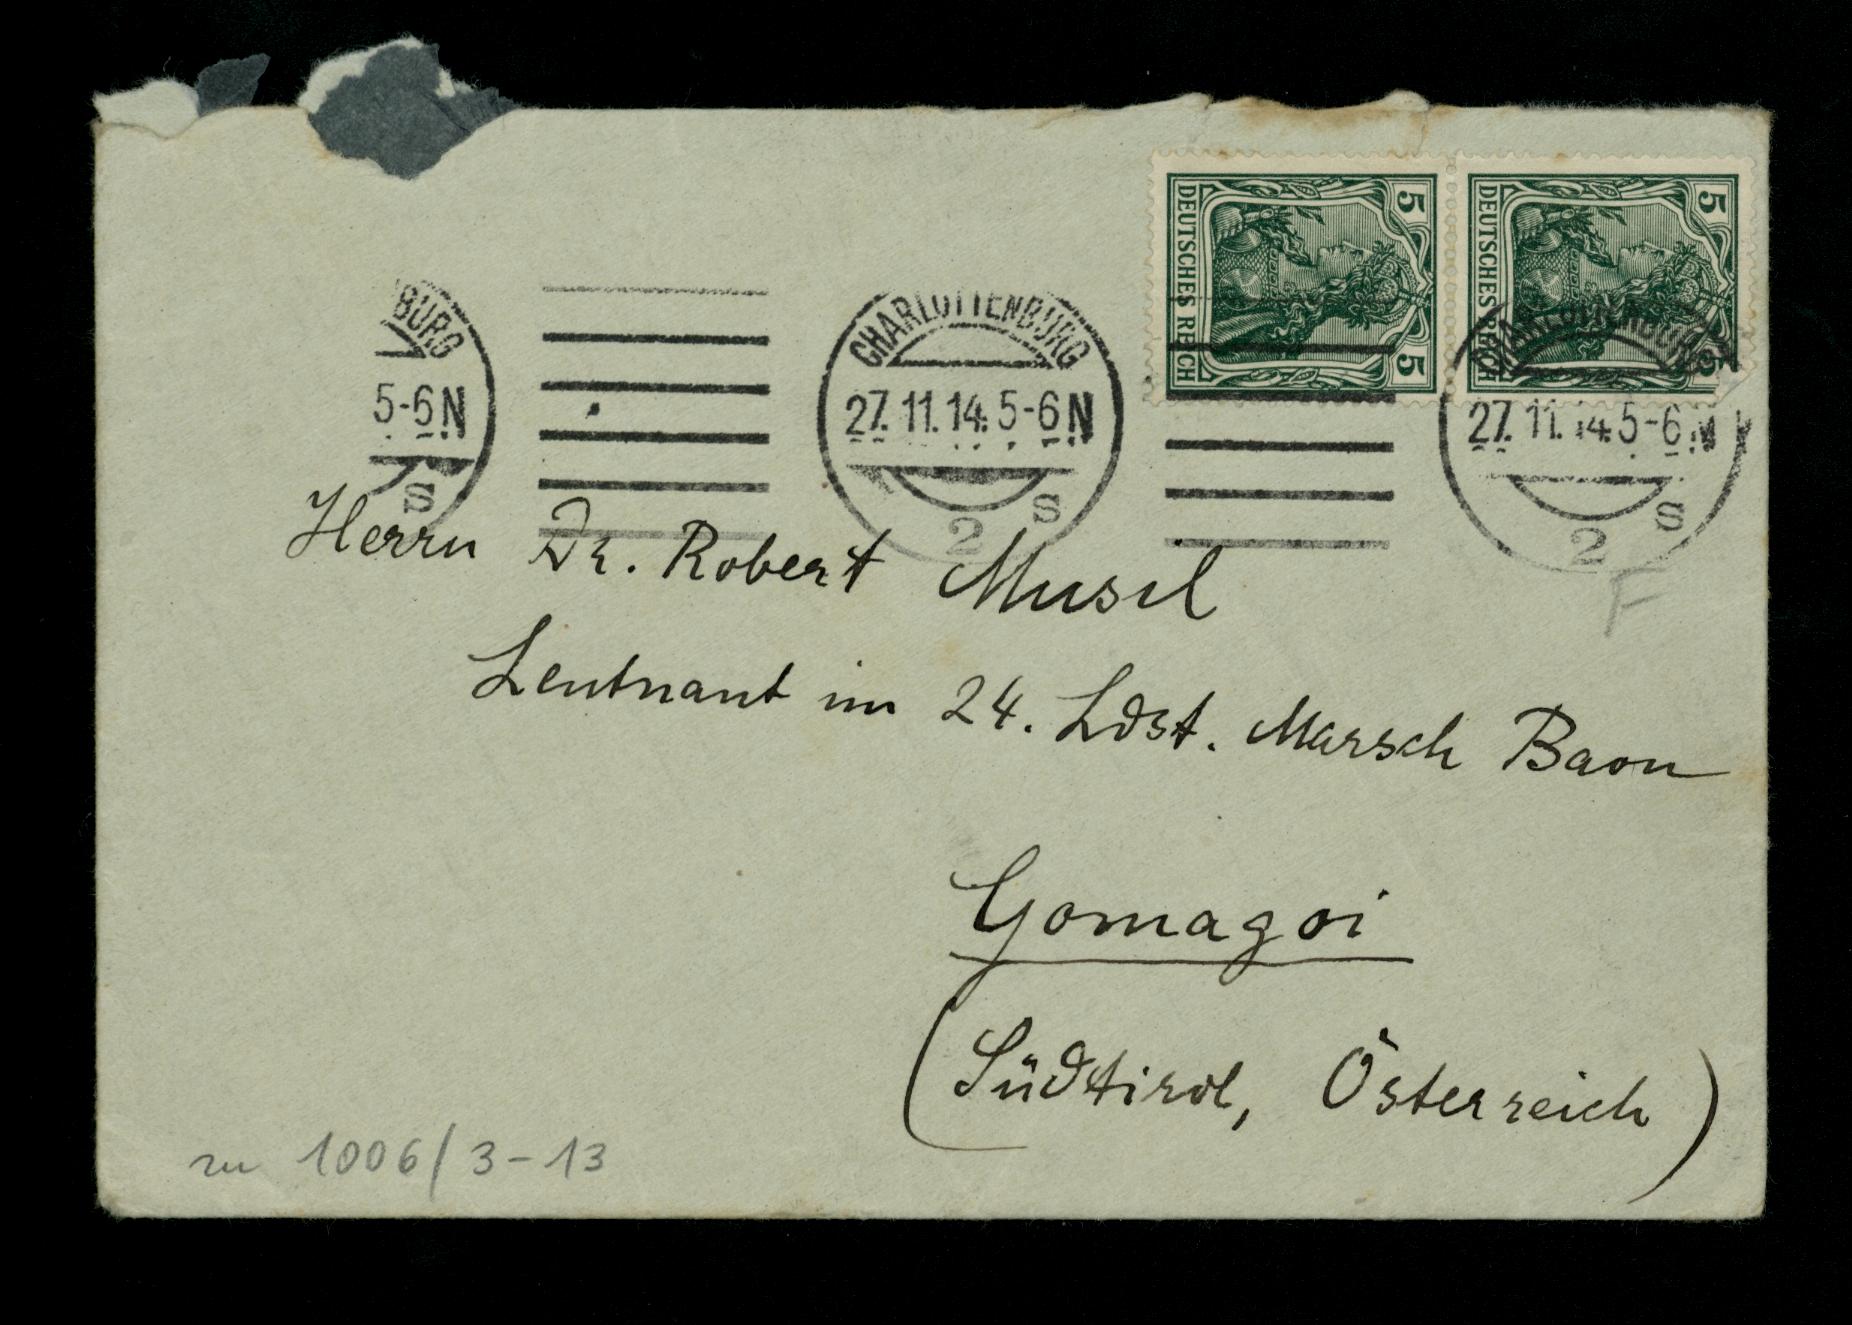 5 5
DEUTSCHES REICH DEUTSCHES REICH
5 5
BURG CHARLOTTENBURG CHARLOTTENBURG
5-6 N 27. 11. 14. 5-6 N 27. 11. 14. 5-6 N
S 2 S 2 S
F
Herrn Dr. Robert Musil
Leutnant im 24. Ldst. Marsch Baon
Gomagoi
(Südtirol, Österreich)
zu 1006/3-13